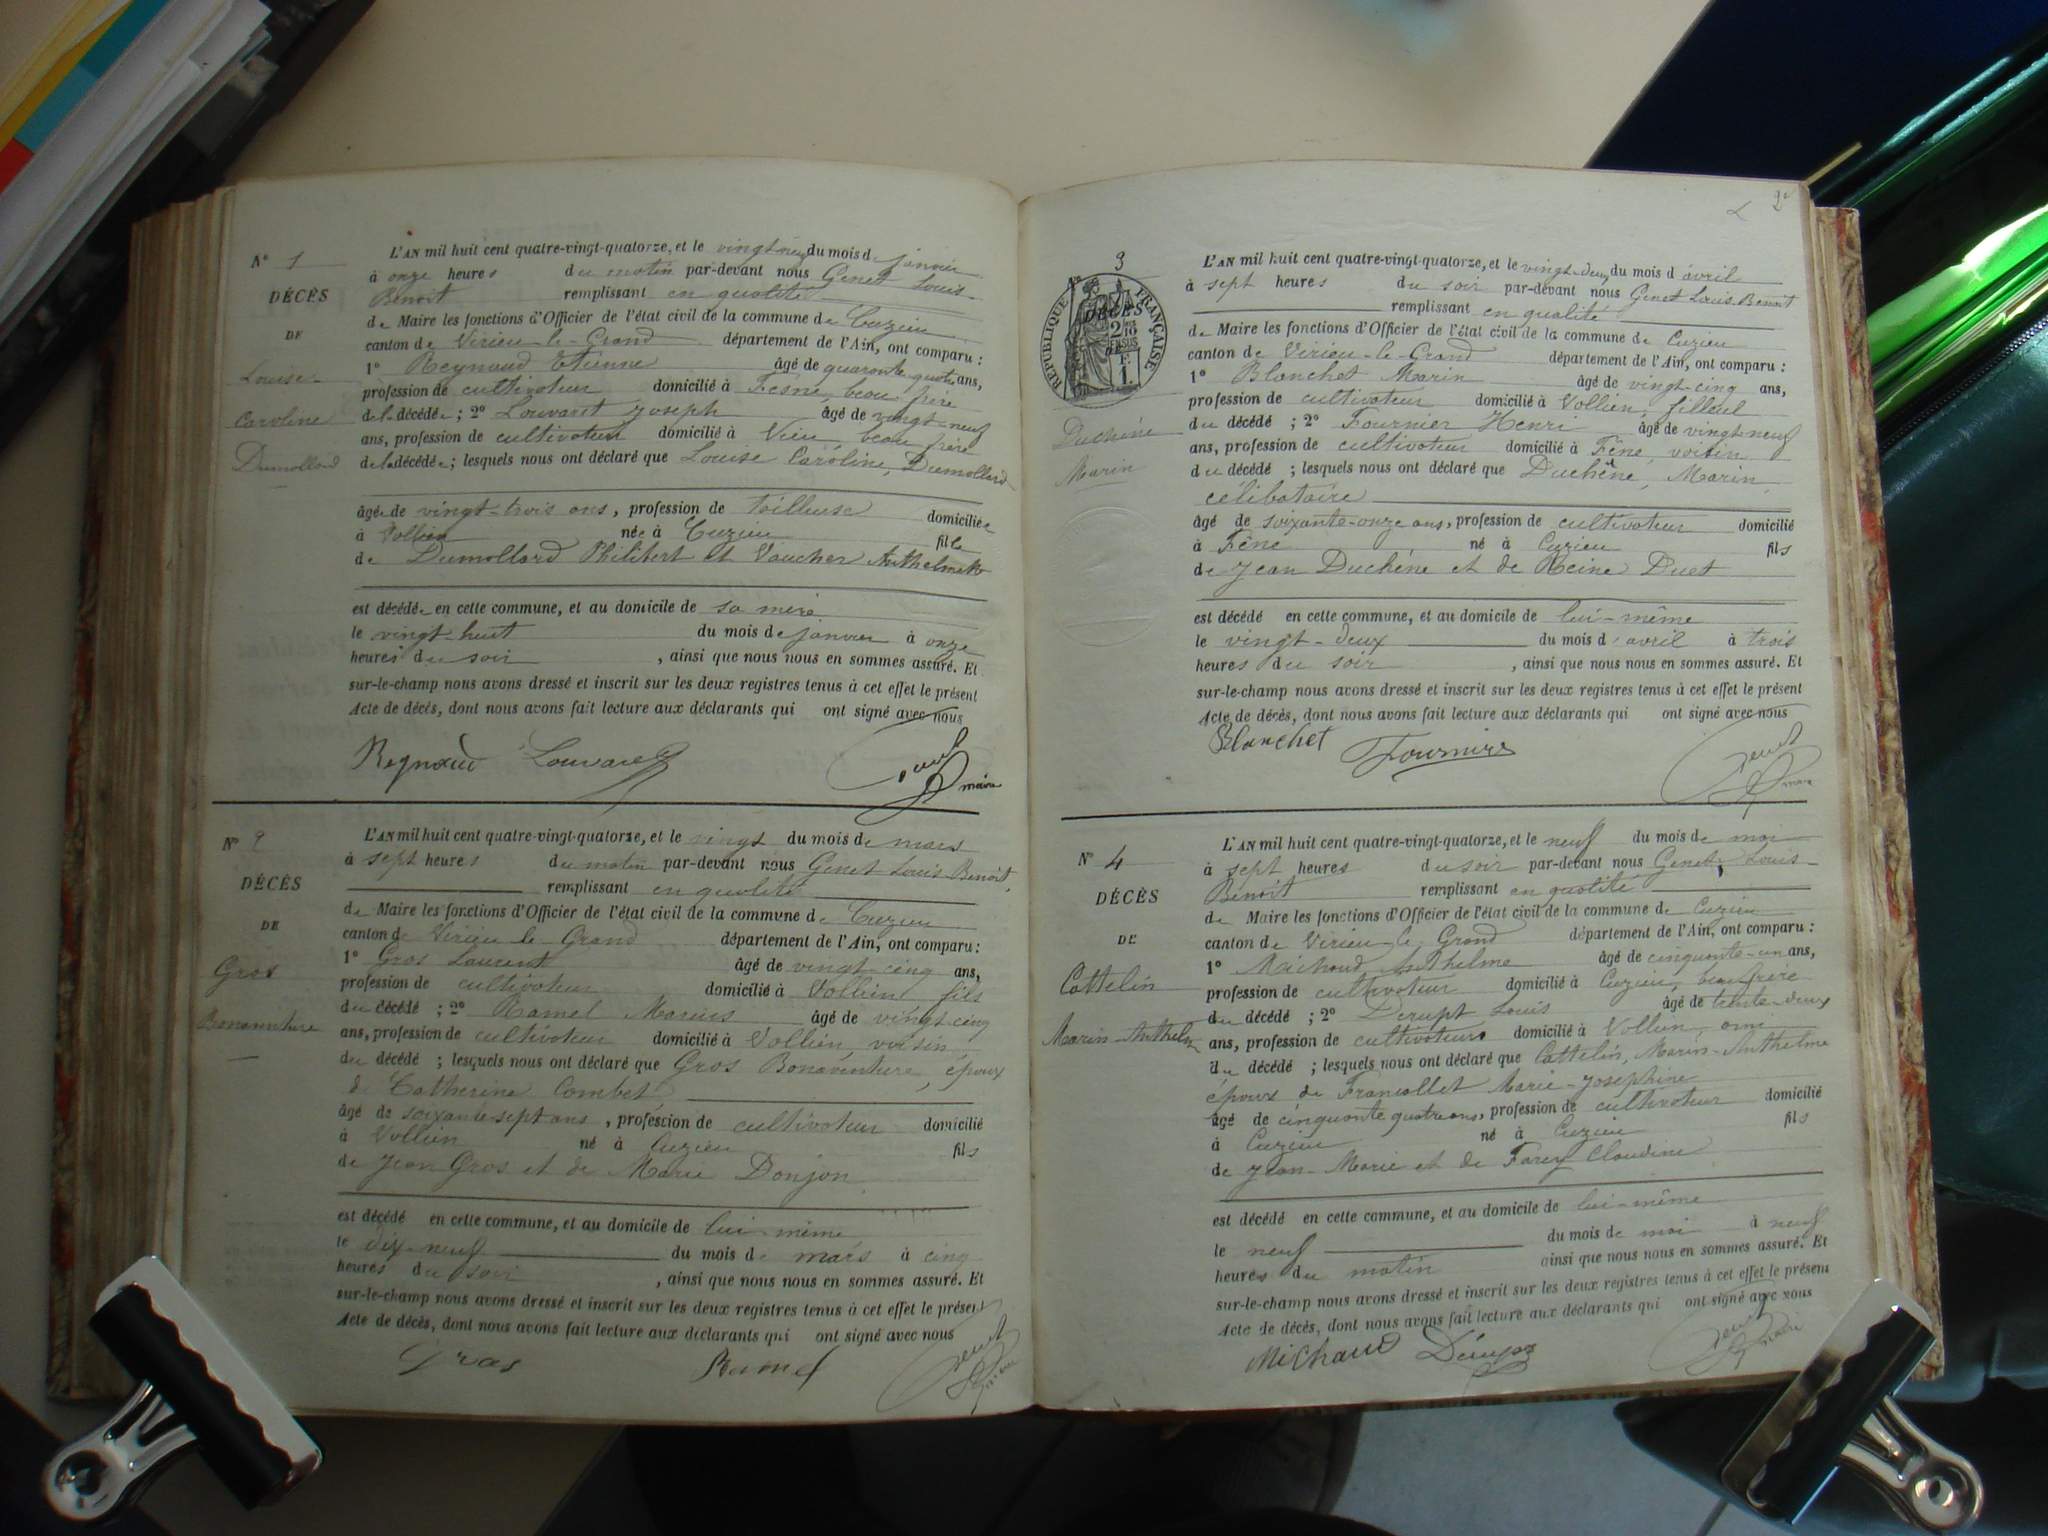 N° 1
DÉCÈS
DE
Louise
Caroline
Dumollard
L'AN mil huit cent quatre-vingt-quatorze, et le vingt-neuf du mois de janvier
à onze heures du matin par-devant nous Genet Louis-
Benoît remplissant en qualité
de Maire les fonctions d'Officier de l'état civil de la commune de Cuzieu
canton de Virieu-le-Grand département de l'Ain, ont comparu :
1° Reynaud Etienne âgé de quarante-quatre ans,
profession de cultivateur domicilié à Fesne, beau frère
de la décédée ; 2° Louvaret Joseph âgé de vingt-neuf
ans, profession de cultivateur domicilié à Vieu, beau frère
de la décédée ; lesquels nous ont déclaré que Louise Caroline, Dumollard
âgée de vingt-trois ans, profession de tailleuse domiciliée
à Vollien née à Cuzieu fille
de Dumollard Philibert et Vaucher Anthelmette
est décédée en cette commune, et au domicile de sa mère
le vingt-huit du mois de janvier à onze
heures du soir , ainsi que nous nous en sommes assuré. Et
sur-le-champ nous avons dressé et inscrit sur les deux registres tenus à cet effet le présent
Acte de décès, dont nous avons fait lecture aux déclarants qui ont signé avec nous
Reynaud Louvaret Genet maire
N° 2
DÉCÈS
DE
Gros
Bonaventure
L'AN mil huit cent quatre-vingt-quatorze, et le vingt du mois de mars
à sept heures du matin par-devant nous Genet Louis Benoit,
remplissant en qualité
de Maire les fonctions d'Officier de l'état civil de la commune de Cuzieu
canton de Virieu-le-Grand département de l'Ain, ont comparu :
1° Gros Laurent âgé de vingt-cinq ans,
profession de cultivateur domicilié à Vollien fils
du décédé ; 2° Ramel Marius âgé de vingt-cinq
ans, profession de cultivateur domicilié à Vollien, voisin
du décédé ; lesquels nous ont déclaré que Gros Bonaventure, époux
de Catherine Combet
âgé de soixante-sept ans, profession de cultivateur domicilié
à Vollien né à Cuzieu fils
de Jean Gros et de Marie Donjon
est décédé en cette commune, et au domicile de lui-même
le dix-neuf du mois de mars à cinq
heures du soir , ainsi que nous nous en sommes assuré. Et
sur-le-champ nous avons dressé et inscrit sur les deux registres tenus à cet effet le présent
Acte de décès, dont nous avons fait lecture aux déclarants qui ont signé avec nous
Gros Ramel Genet maire
2
3
RÉPUBLIQUE FRANÇAISE
DÉCÈS
DE
Duchêne
Marin
L'AN mil huit cent quatre-vingt-quatorze, et le vingt-deux du mois d'avril
à sept heures du soir par-devant nous Genet Louis Benoit
remplissant en qualité
de Maire les fonctions d'Officier de l'état civil de la commune de Cuzieu
canton de Virieu-le-Grand département de l'Ain, ont comparu :
1° Blanchet Marin âgé de vingt-cinq ans,
profession de cultivateur domicilié à Vollien, filleul
du décédé ; 2° Fournier Henri âgé de vingt-neuf
ans, profession de cultivateur domicilié à Fêne, voisin
du décédé ; lesquels nous ont déclaré que Duchêne, Marin,
célibataire
âgé de soixante-onze ans, profession de cultivateur domicilié
à Fêne né à Cuzieu fils
de Jean Duchêne et de Reine Duet
est décédé en cette commune, et au domicile de lui-même
le vingt-deux du mois d'avril à trois
heures du soir , ainsi que nous nous en sommes assuré. Et
sur-le-champ nous avons dressé et inscrit sur les deux registres tenus à cet effet le présent
Acte de décès, dont nous avons fait lecture aux déclarants qui ont signé avec nous
Blanchet Fournier Genet maire
N° 4
DÉCÈS
DE
Cattelin
Marin-Anthelme
L'AN mil huit cent quatre-vingt-quatorze, et le neuf du mois de mai
à sept heures du soir par-devant nous Genet, Louis-
Benoît remplissant en qualité
de Maire les fonctions d'Officier de l'état civil de la commune de Cuzieu
canton de Virieu-le-Grand département de l'Ain, ont comparu :
1° Michaud Anthelme âgé de cinquante-un ans,
profession de cultivateur domicilié à Cuzieu, beau frère
du décédé ; 2° Derupt Louis âgé de trente-deux
ans, profession de cultivateur domicilié à Vollien, ami
du décédé ; lesquels nous ont déclaré que Cattelin, Marin-Anthelme
époux de Francollet Marie-Josephine
âgé de cinquante quatre ans, profession de cultivateur domicilié
à Cuzieu né à Cuzieu fils
de Jean-Marie et de Farey Claudine
est décédé en cette commune, et au domicile de lui-même
le neuf du mois de mai à neuf
heures du matin ainsi que nous nous en sommes assuré. Et
sur-le-champ nous avons dressé et inscrit sur les deux registres tenus à cet effet le présent
Acte de décès, dont nous avons fait lecture aux déclarants qui ont signé avec nous
Michaud Derupt Genet maire